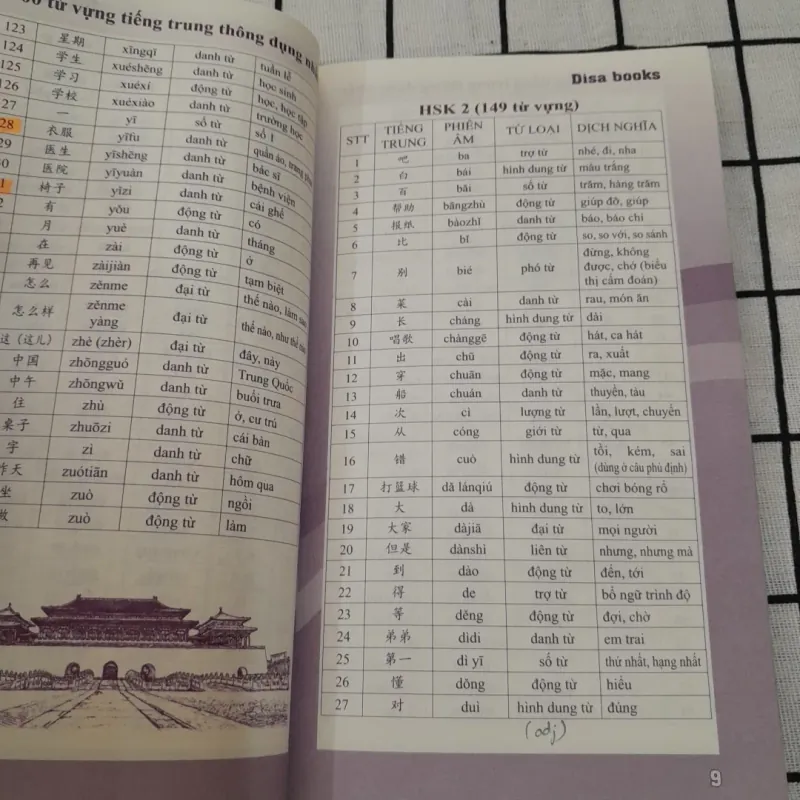 từ vựng tiếng trung thông dụng
123 星期 xīngqī danh từ tuần lễ
124 学生 xuéshēng danh từ học sinh
125 学习 xuéxí động từ học, học tập
126 学校 xuéxiào danh từ trường học
27 一 yī số từ số 1
28 衣服 yīfu danh từ quần áo, trang
29 医生 yīshēng danh từ bác sĩ
30 医院 yīyuàn danh từ bệnh viện
1 椅子 yǐzi danh từ cái ghế
2 有 yǒu động từ có
月 yuè danh từ tháng
在 zài động từ ở
再见 zàijiàn động từ tạm biệt
怎么 zěnme đại từ thế nào, làm sao
怎么样 zěnme yàng đại từ thế nào, như thế nào
这 (这儿) zhè (zhèr) đại từ đây, này
中国 zhōngguó danh từ Trung Quốc
中午 zhōngwǔ danh từ buổi trưa
住 zhù động từ ở, cư trú
桌子 zhuōzi danh từ cái bàn
字 zì danh từ chữ
昨天 zuótiān danh từ hôm qua
坐 zuò động từ ngồi
做 zuò động từ làm
Disa books
HSK 2 (149 từ vựng)
STT TIẾNG TRUNG PHIÊN ÂM TỪ LOẠI DỊCH NGHĨA
1 吧 ba trợ từ nhé, đi, nha
2 白 bái hình dung từ màu trắng
3 百 bǎi số từ trăm, hàng trăm
4 帮助 bāngzhù động từ giúp đỡ, giúp
5 报纸 bàozhǐ danh từ báo, báo chí
6 比 bǐ động từ so, so với, so sánh
7 别 bié phó từ đừng, không
được, chớ (biểu
thị cấm đoán)
8 菜 cài danh từ rau, món ăn
9 长 cháng hình dung từ dài
10 唱歌 chànggē động từ hát, ca hát
11 出 chū động từ ra, xuất
12 穿 chuān động từ mặc, mang
13 船 chuán danh từ thuyền, tàu
14 次 cì lượng từ lần, lượt, chuyến
15 从 cóng giới từ từ, qua
16 错 cuò hình dung từ tồi, kém, sai
(dùng ở câu phủ định)
17 打篮球 dǎ lánqiú động từ chơi bóng rổ
18 大 dà hình dung từ to, lớn
19 大家 dàjiā đại từ mọi người
20 但是 dànshì liên từ nhưng, nhưng mà
21 到 dào động từ đến, tới
22 得 de trợ từ bổ ngữ trình độ
23 等 děng động từ đợi, chờ
24 弟弟 dìdi danh từ em trai
25 第一 dì yī số từ thứ nhất, hạng nhất
26 懂 dǒng động từ hiểu
27 对 duì hình dung từ đúng
(adj)
9